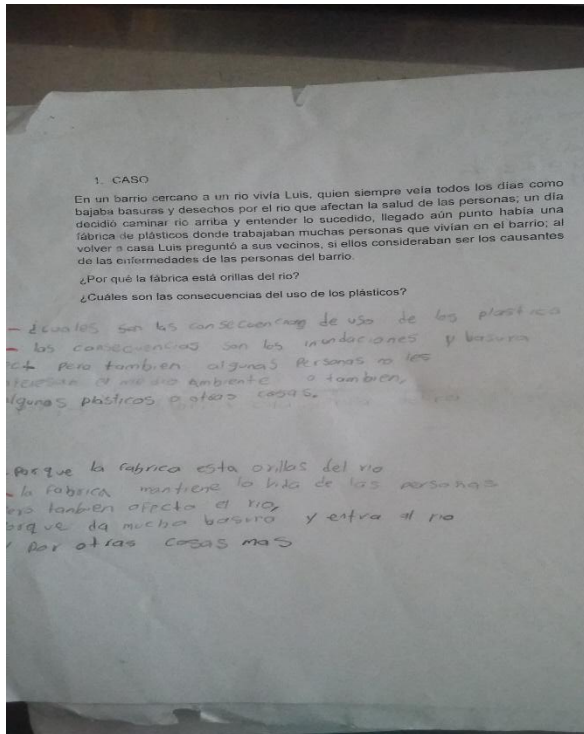 1. CASO
En un barrio cercano a un rio vivía Luis, quien siempre veía todos los días como
bajaba basuras y desechos por el rio que afectan la salud de las personas; un día
decidió caminar rio arriba y entender lo sucedido, llegado aún punto había una
fábrica de plásticos donde trabajaban muchas personas que vivían en el barrio; al
volver a casa Luis preguntó a sus vecinos, si ellos consideraban ser los causantes
de las enfermedades de las personas del barrio.
¿Por qué la fábrica está orillas del rio?
¿Cuáles son las consecuencias del uso de los plásticos?
- son las de uso de los plastico
- las son las inundaciones y basura
pero tambien algunas personas no les
el medio ambiente o tambien,
algunas plasticos o otras cosas.
porque la fabrica esta orillas del rio
- la fabrica mantiene la vida de las personas
tanbien afecta el rio,
porque da mucha basura y entra al rio
y por otras cosas mas